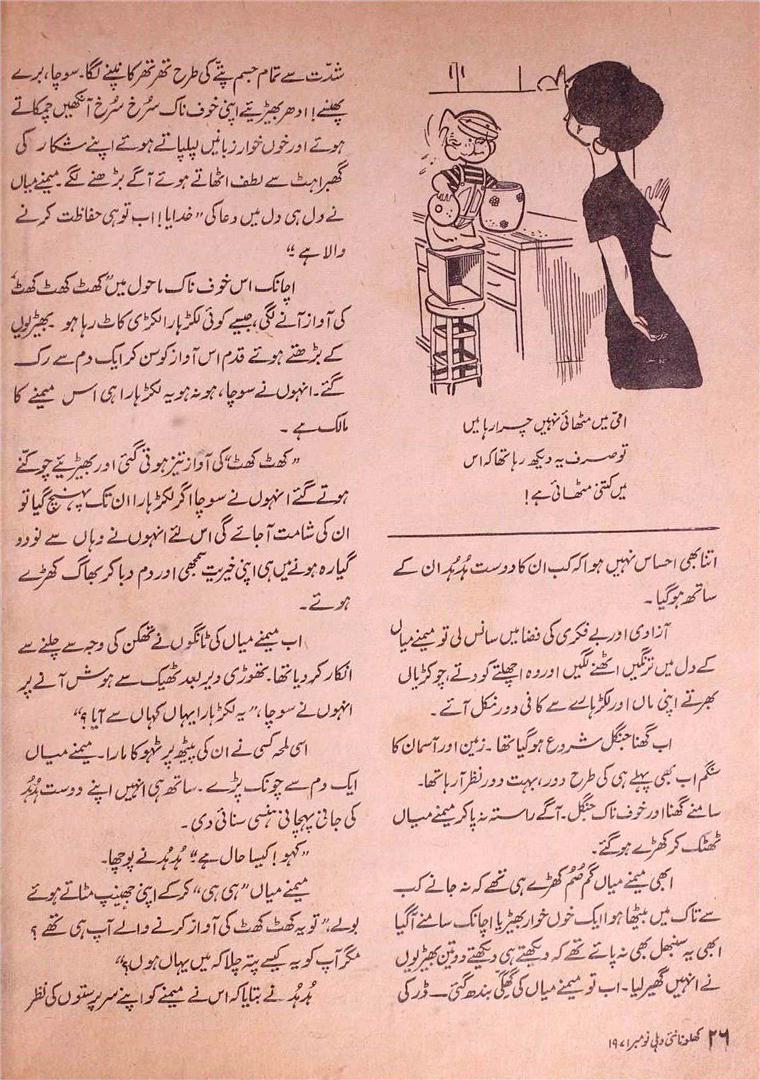 امّی میں مٹھائی نہیں چرا رہا ہیں
تو صرف یہ دیکھ رہا تھا کہ اس
میں کتنی مٹھائی ہے!
اتنا بھی احساس نہیں ہوا کہ کب ان کا دوست ہُدہُد ان کے
ساتھ ہو گیا۔
آزادی اور بے فکری کی فضا میں سانس لی تو میمنے میاں
کے دل میں ترنگیں اٹھنے لگیں اور وہ اچھلتے کودتے، چوکڑیاں
بھرتے اپنی ماں اور لکڑہارے سے کافی دور نکل آئے۔
اب گھنا جنگل شروع ہو گیا تھا۔ زمین اور آسمان کا
سنگم اب بھی پہلے ہی کی طرح دور، بہت دور نظر آ رہا تھا۔
سامنے گھنا اور خوف ناک جنگل۔ آگے راستہ نہ پا کر میمنے میاں
ٹھٹک کر کھڑے ہو گئے۔
ابھی میمنے میاں گم صُم کھڑے ہی تھے کہ نہ جانے کب
سے تاک میں بیٹھا ہوا ایک خوں خوار بھیڑیا اچانک سامنے آ گیا
ابھی یہ سنبھل بھی نہ پائے تھے کہ دیکھتے ہی دیکھتے دو تین بھیڑیوں
نے انہیں گھیر لیا۔ اب تو میمنے میاں کی گھگّی بندھ گئی — ڈر کی
شدّت سے تمام جسم پتّے کی طرح تھر تھر کانپنے لگا۔ سوچا، برے
پھنسے! ادھر بھیڑیئے اپنی خوف ناک سُرخ سُرخ آنکھیں چمکاتے
ہوئے اور خوں خوار زبانیں لپلپاتے ہوئے اپنے شکار کی
گھبراہٹ سے لطف اٹھاتے ہوئے آگے بڑھنے لگے۔ میمنے میاں
نے دل ہی دل میں دعا کی ”خدایا! اب تو ہی حفاظت کرنے
والا ہے۔“
اچانک اس خوف ناک ماحول میں ”کھٹ کھٹ کھٹ کھٹ“
کی آواز آنے لگی، جیسے کوئی لکڑہارا لکڑی کاٹ رہا ہو۔ بھیڑیوں
کے بڑھتے ہوئے قدم اس آواز کو سن کر ایک دم سے رک
گئے۔ انہوں نے سوچا، ہو نہ ہو یہ لکڑہارا ہی اس میمنے کا
مالک ہے۔
”کھٹ کھٹ“ کی آواز تیز ہوتی گئی اور بھیڑیئے چوکنّے
ہوتے گئے انہوں نے سوچا اگر لکڑہارا ان تک پہنچ گیا تو
ان کی شامت آجائے گی اس لئے انہوں نے وہاں سے نو دو
گیارہ ہونے میں ہی اپنی خیریت سمجھی اور دم دبا کر بھاگ کھڑے
ہوئے۔
اب میمنے میاں کی ٹانگوں نے تھکن کی وجہ سے چلنے سے
انکار کر دیا تھا۔ تھوڑی دیر بعد ٹھیک سے ہوش آنے پر
انہوں نے سوچا، ”یہ لکڑہارا یہاں کہاں سے آیا؟“
اسی لمحہ کسی نے ان کی پیٹھ پر ٹہوکا مارا۔ میمنے میاں
ایک دم سے چونک پڑے۔ ساتھ ہی انہیں اپنے دوست ہُدہُد
کی جانی پہچانی ہنسی سنائی دی۔
”کہو! کیسا حال ہے“ ہُدہُد نے پوچھا۔
میمنے میاں ”ہی ہی“ کر کے اپنی جھینپ مٹاتے ہوئے
بولے، ”تو یہ کھٹ کھٹ کی آواز کرنے والے آپ ہی تھے؟
مگر آپ کو یہ کیسے پتہ چلا کہ میں یہاں ہوں؟“
ہُدہُد نے بتایا کہ اس نے میمنے کو اپنے سرپرستوں کی نظر
۲۶ کھلونا نئی دہلی نومبر ۱۹۷۱